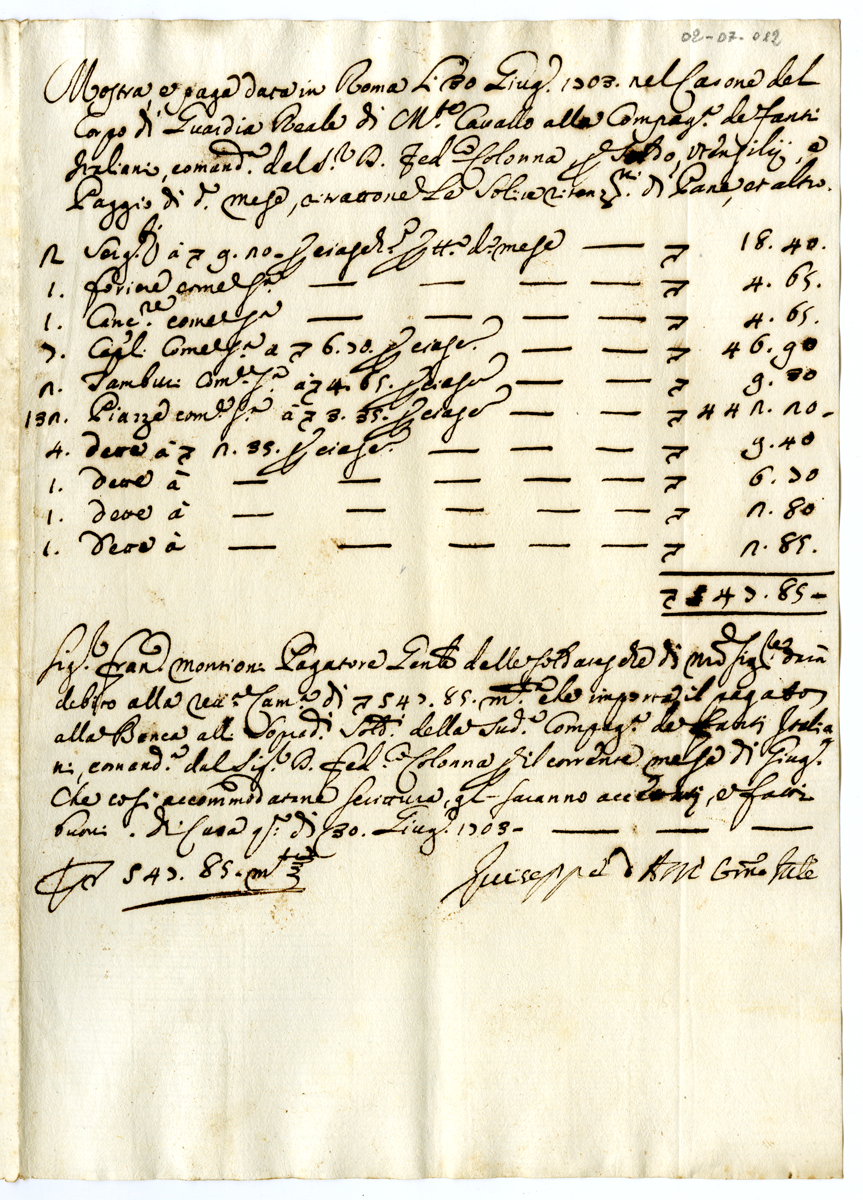 02-07-012
Mostra, e paga data in Roma li 30 Giug.º 1703. nel Casone del
Corpo di Guardia Reale di M.te Cavallo alla Compag.a de fanti
Italiani, comand.ta dal S.r D. Fed.co Colonna p Soldo, Utensilij, e
Paggio di d.º mese, e
2 Serg.ti à 7 9. 20 - p ciasched.º p tt.º d.º mese — 7 18. 40.
1. foriere come s.a — — — — 7 4. 65.
1. Canc.re come s.a — — — — 7 4. 65.
7. Cap.li Come s.a a 7 6. 70. p ciasc.º — — 7 46. 90
2. Tamburi Com.e s.a à 7 4. 65. p ciasc.º — — 7 9. 30
132. Piazze com.e s.a à 7 3. 35. p ciasc.º — — 7 442. 20 -
4. dette à 7 2. 35. p ciasc.º — — — 7 9. 40
1. dette à — — — — — 7 6. 70
1. dette à — — — — — 7 2. 80
1. dette à — — — — — 7 2. 85.
7 547. 85 -
Sig.r Fran.co Montioni Pagatore Gen.le delle Soldatesche di
debito alla rev.a Cam.a di 7 547. 85. m.ta che importa il pagato
alla Banca alli Soprad.i Sold.i della Sud.a Compag.a de Fanti Italia
ni, comand.ta dal Sig.r D. Fed.co Colonna p il corrente mese di Giug.º
Che così accommodatone scrittura, gl- saranno accettati, e fatti
buoni. di Casa q.º dì 30. Giug.º 1703 - — — —
7 547. 85. m.ta
Giuseppe